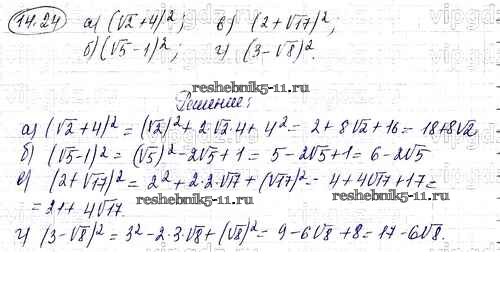 14.24 а) (√2+4)²; в) (2+√17)²;
б) (√5-1)²; г) (3-√8)².
reshebnik5-11.ru
Решение:
а) (√2+4)² = (√2)² + 2·√2·4 + 4² = 2+8√2+16 = 18+8√2
б) (√5-1)² = (√5)² - 2√5 + 1 = 5-2√5+1 = 6-2√5
в) (2+√17)² = 2² + 2·2·√17 + (√17)² = 4+4√17+17 =
= 21 + 4√17.
reshebnik5-11.ru
reshebnik5-11.ru
г) (3-√8)² = 3² - 2·3·√8 + (√8)² = 9-6√8+8 = 17-6√8.